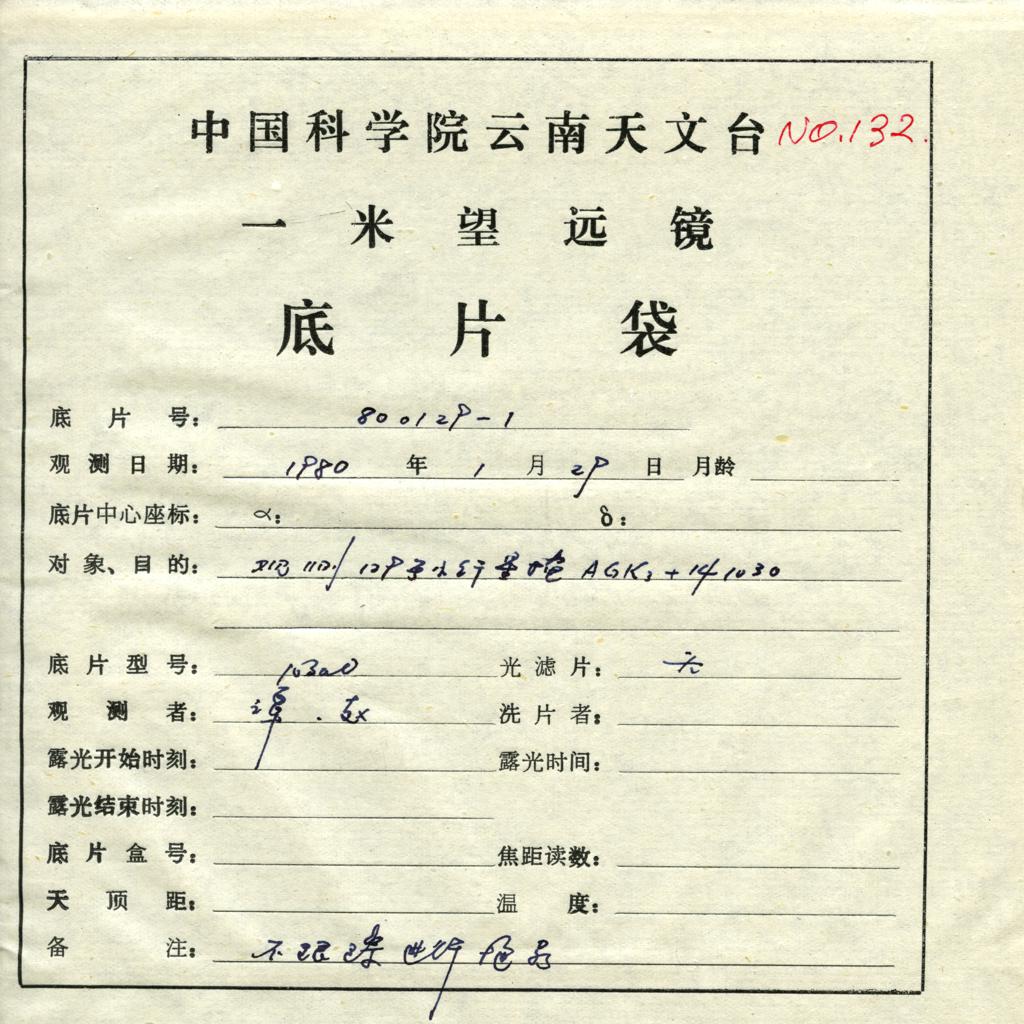 中国科学院云南天文台 NO.132.
一米望远镜
底片袋
底片号: 800129-1
观测日期: 1980 年 1 月 29 日 月龄
底片中心座标: α: δ:
对象、目的: 129号小行星掩 AGK3+19 1030
底片型号: 103aO 光滤片: 无
观测者: 谭. 洗片者:
露光开始时刻: 露光时间:
露光结束时刻:
底片盒号: 焦距读数:
天顶距: 温度:
备注: 不跟踪进行